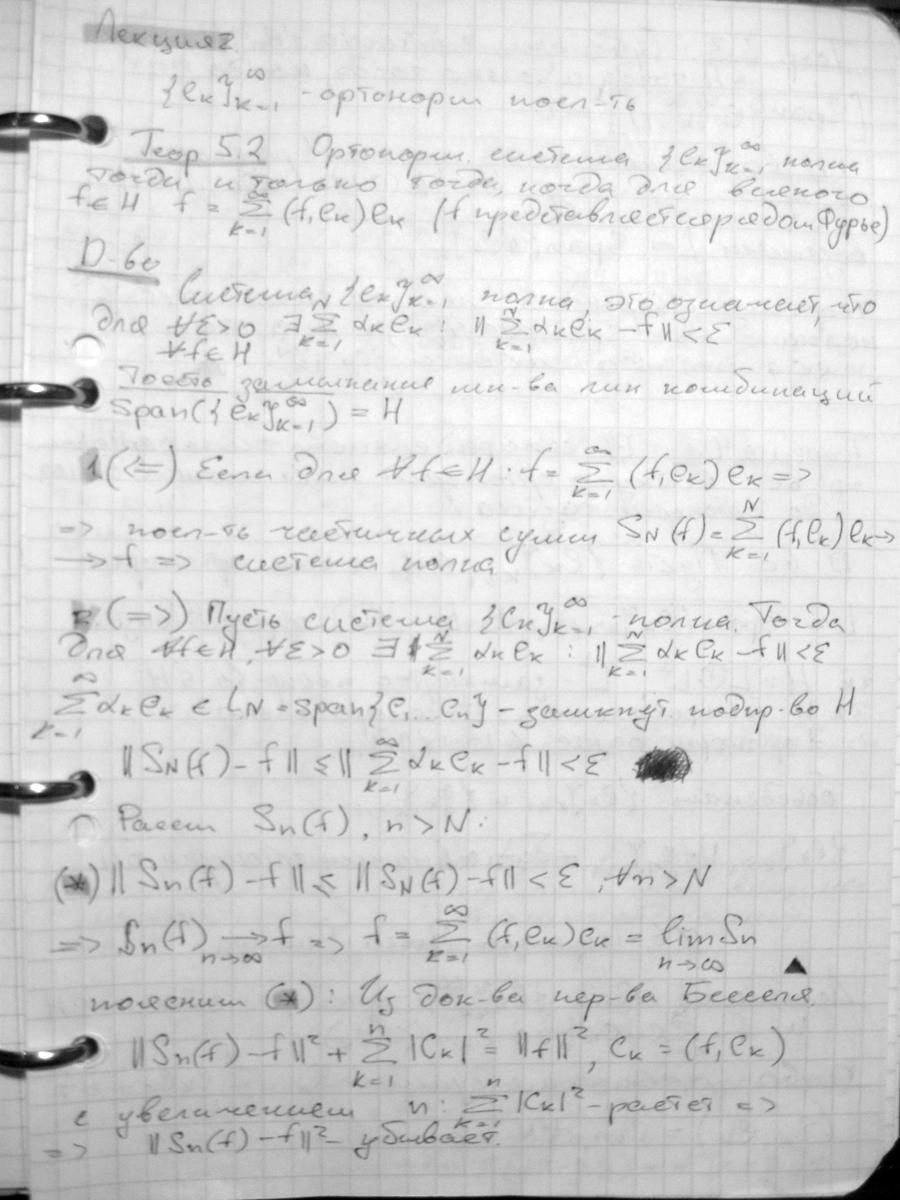 Лекция 2
{eₖ}ₖ₌₁^∞ - ортонорм посл-ть
Теор 5.2 Ортонорм. система {eₖ}ₖ₌₁^∞ полна
тогда и только тогда, когда для всякого
f∈H f = ∑ₖ₌₁^∞ (f,eₖ)eₖ (f представляется рядом Фурье)
D-во
Система {eₖ}ₖ₌₁^∞ полна, это означает, что
для ∀ε>0 ∃ ∑ₖ₌₁^N αₖeₖ : ‖∑ₖ₌₁^N αₖeₖ - f‖ < ε
∀f∈H
Тоесть замыкание мн-ва лин комбинаций
Span({eₖ}ₖ₌₁^∞) = H
1.(<=) Если для ∀f∈H : f = ∑ₖ₌₁^∞ (f,eₖ)eₖ =>
=> посл-ть частичных сумм S_N(f) = ∑ₖ₌₁^N (f,eₖ)eₖ→
→ f => система полна
2.(=>) Пусть система {eₖ}ₖ₌₁^∞ - полна. Тогда
для ∀f∈H, ∀ε>0 ∃ ∑ₖ₌₁^N αₖeₖ : ‖∑ₖ₌₁^N αₖeₖ - f‖ < ε
∑ₖ₌₁^∞ αₖeₖ ∈ L_N = span{e₁...eₙ} - замкнут подпр-во H
‖S_N(f) - f‖ ≤ ‖∑ₖ₌₁^∞ αₖeₖ - f‖ < ε
Рассм Sₙ(f), n > N:
(*) ‖Sₙ(f) - f‖ ≤ ‖S_N(f) - f‖ < ε, ∀n > N
=> Sₙ(f) →_{n→∞} f => f = ∑ₖ₌₁^∞ (f,eₖ)eₖ = lim_{n→∞} Sₙ ▲
поясним (*): Из док-ва нер-ва Бесселя
‖Sₙ(f) - f‖² + ∑ₖ₌₁^n |cₖ|² = ‖f‖², cₖ = (f,eₖ)
с увеличением n: ∑ₖ₌₁^n |cₖ|² - растет =>
=> ‖Sₙ(f) - f‖² - убывает.